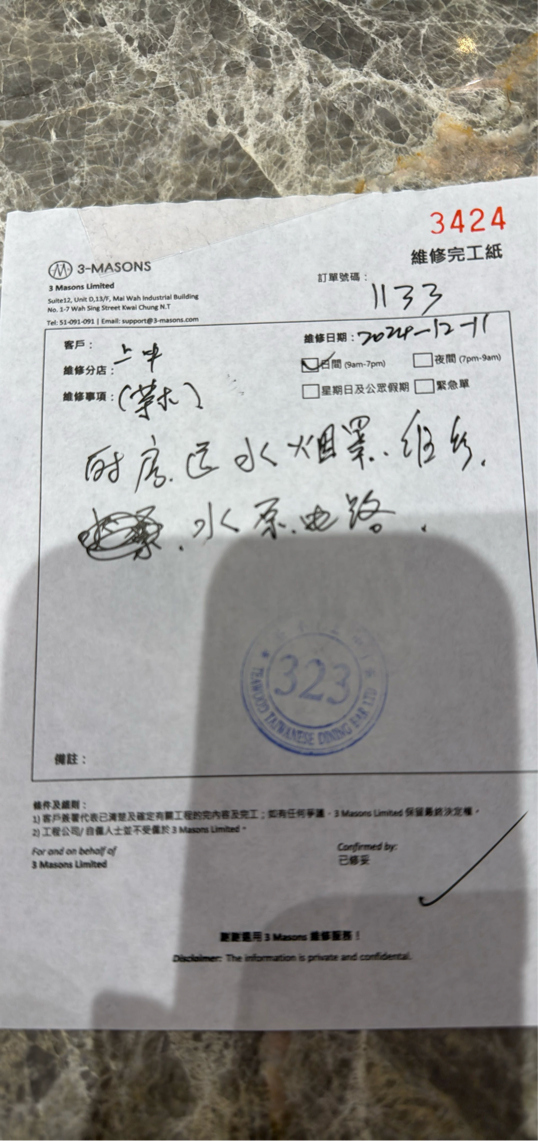 3424
維修完工紙
3-MASONS
3 Masons Limited
Suite12, Unit D,13/F, Mai Wah Industrial Building
No. 1-7 Wah Sing Street Kwai Chung N.T
Tel: 51-091-091 | Email: support@3-masons.com
訂單號碼：
1133
客戶：
維修日期：2024-12-11
維修分店：上水
日間 (9am-7pm) 夜間 (7pm-9am)
維修事項：(茶木)
星期日及公眾假期 緊急單
厨房运水烟罩.维修.
水泵.电路.
323
TEAWOOD TAIWANESE DINING BAR LTD
備註：
條件及細則：
1) 客戶簽署代表已清楚及確定有關工程的完內容及完工；如有任何爭議，3 Masons Limited 保留最終決定權。
2) 工程公司/ 自僱人士並不受僱於 3 Masons Limited。
For and on behalf of
3 Masons Limited
Confirmed by:
已修妥
謝謝選用 3 Masons 維修服務！
Disclaimer: The information is private and confidental.